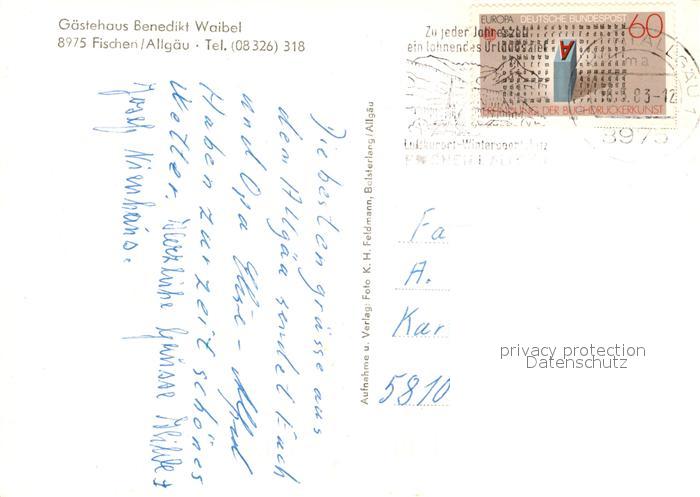 Gästehaus Benedikt Waibel
8975 Fischen/Allgäu · Tel. (08326) 318
Zu jeder Jahreszeit
ein lohnendes Urlaubsziel
Luftkurort-Wintersportplatz
EUROPA DEUTSCHE BUNDESPOST 60
ERFINDUNG DER BUCHDRUCKERKUNST
A
83-12
8975
Die besten grüsse aus
dem Allgäu sendet Euch
und Opa Elise - Alfred
Haben zur zeit schönes
Wetter. Herzliche Grüsse Hilde +
Josef Nienhaus.
Aufnahme u. Verlag: Foto K. H. Feldmann, Bolsterlang/Allgäu
Fa
A.
Kar
5810
privacy protection
Datenschutz